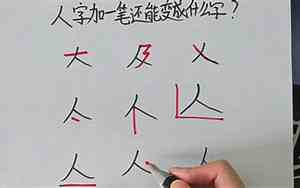 人字加一笔还能变成什么字?
大 及 乂
个
人 人